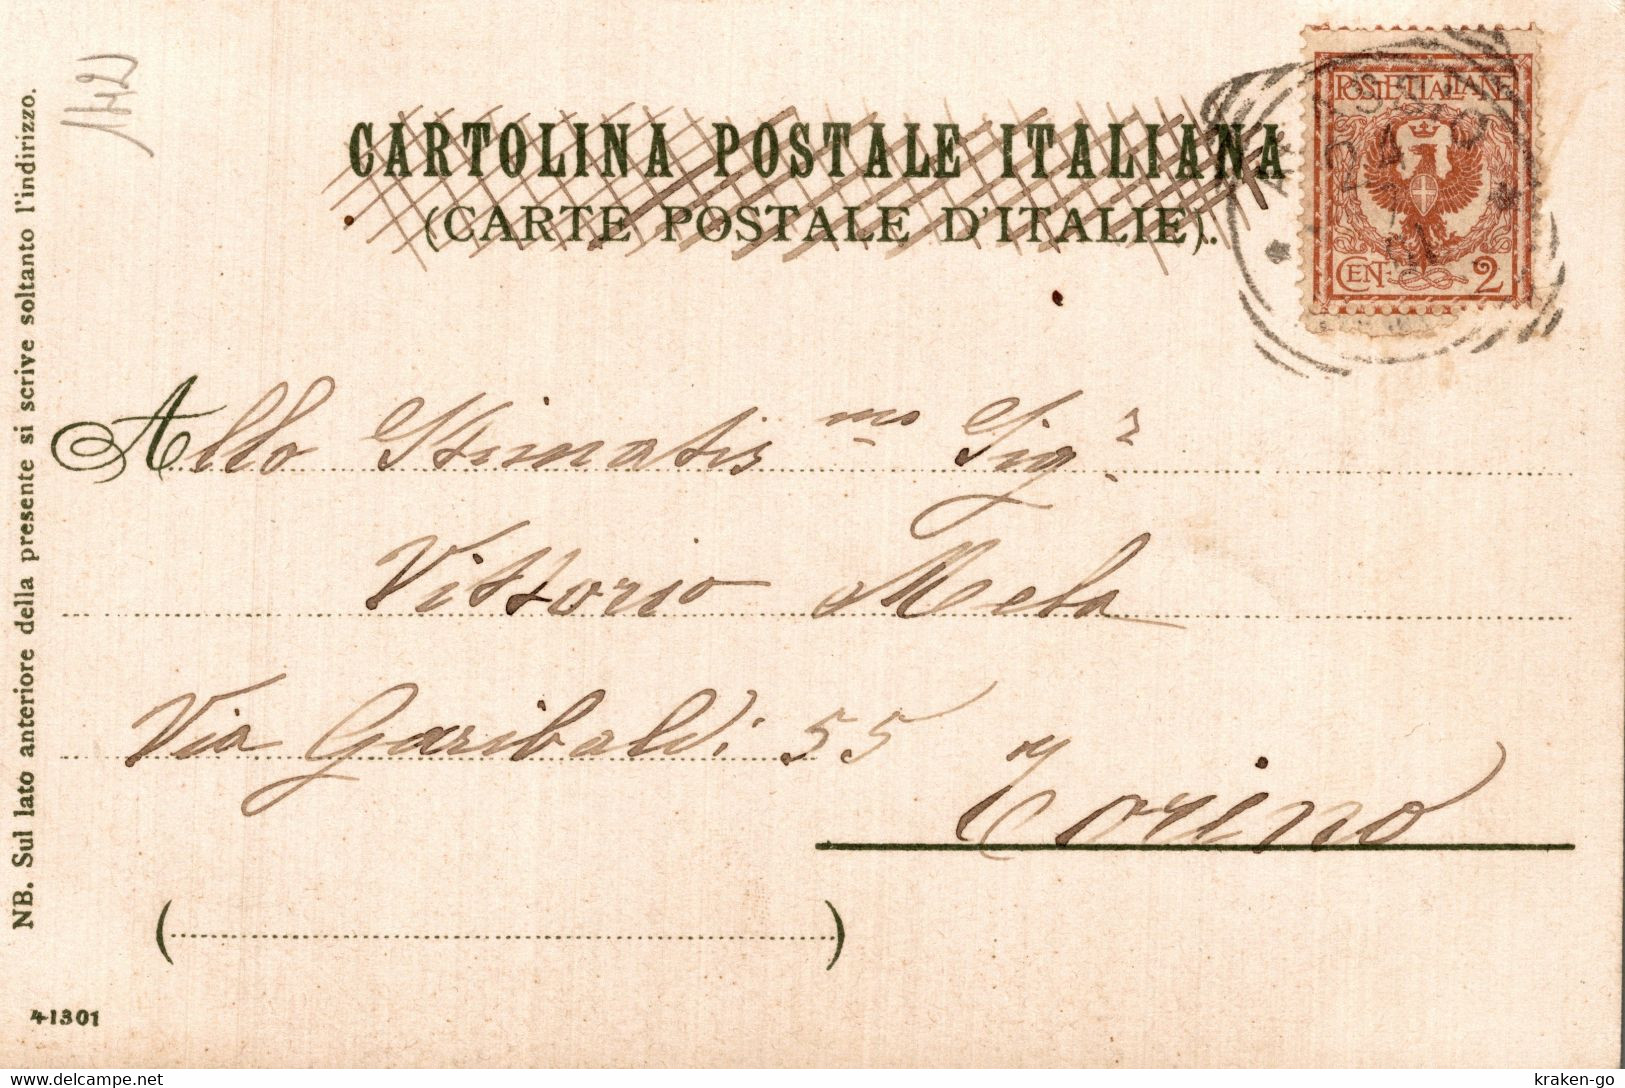 142
CARTOLINA POSTALE ITALIANA
(CARTE POSTALE D'ITALIE).
POSTE ITALIANE
CENT. 2
Allo Stimatis mo Sigr
Vittorio Mela
Via Garibaldi 55
Torino
NB. Sul lato anteriore della presente si scrive soltanto l'indirizzo.
41301
delcampe.net
kraken-go